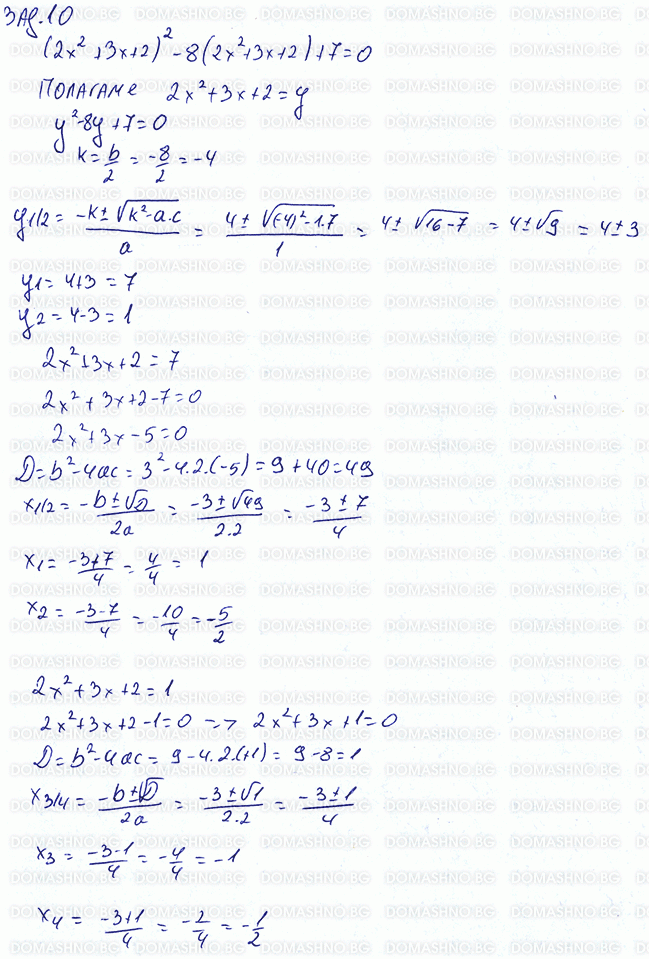 Зад.10
(2x²+3x+2)²-8(2x²+3x+2)+7=0
Полагаме 2x²+3x+2=y
y²-8y+7=0
k=b/2=-8/2=-4
y1/2=(-k±√(k²-a.c))/a=(4±√((-4)²-1.7))/1=4±√(16-7)=4±√9=4±3
y1=4+3=7
y2=4-3=1
2x²+3x+2=7
2x²+3x+2-7=0
2x²+3x-5=0
D=b²-4ac=3²-4.2.(-5)=9+40=49
x1/2=(-b±√D)/2a=(-3±√49)/2.2=(-3±7)/4
x1=(-3+7)/4=4/4=1
x2=(-3-7)/4=-10/4=-5/2
2x²+3x+2=1
2x²+3x+2-1=0 => 2x²+3x+1=0
D=b²-4ac=9-4.2.(+1)=9-8=1
x3/4=(-b±√D)/2a=(-3±√1)/2.2=(-3±1)/4
x3=(-3-1)/4=-4/4=-1
x4=(-3+1)/4=-2/4=-1/2
DOMASHNO.BG